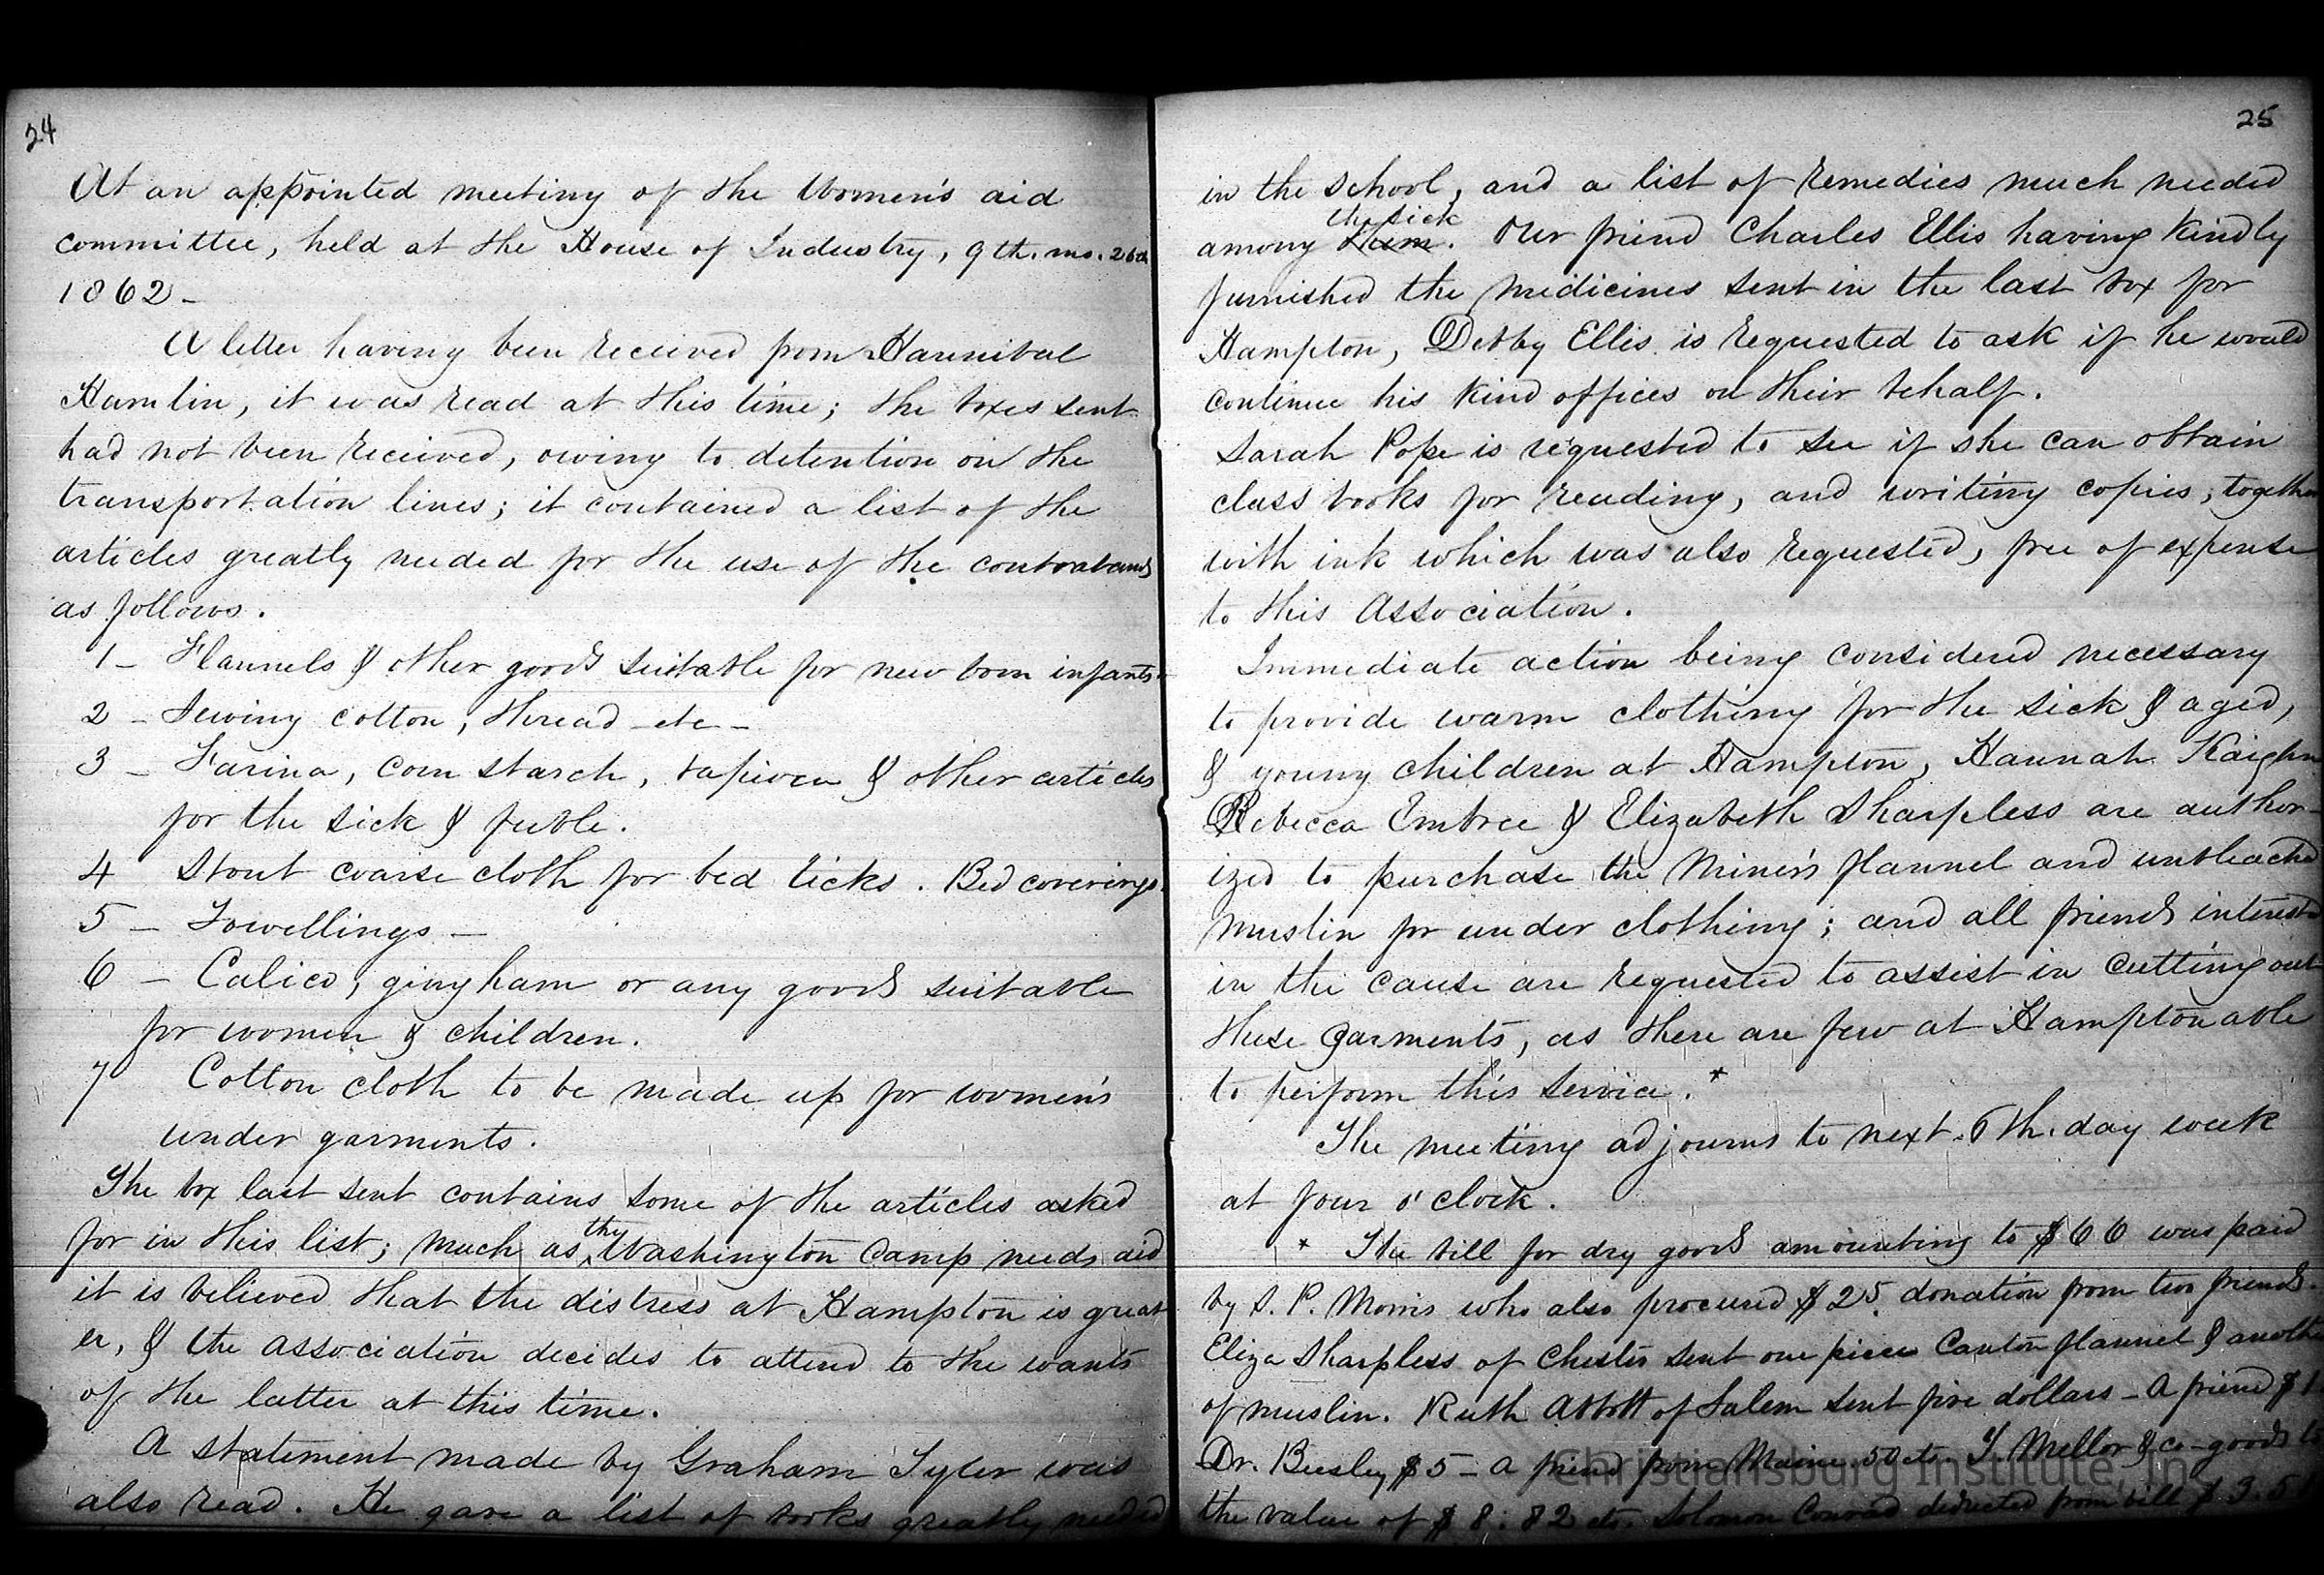 24
At an appointed meeting of the Women's aid
committee, held at the House of Industry, 9th. mo. 26th
1862 -
A letter having been received from Hannibal
Hamlin, it was read at this time; the boxes sent
had not been received, owing to detention on the
transportation lines; it contained a list of the
articles greatly needed for the use of the contrabands
as follows.
1 - Flannels & other goods suitable for new born infants.
2 - Sewing cotton, thread - etc -
3 - Farina, corn starch, tapioca & other articles
for the sick & feeble.
4 Stout coarse cloth for bed ticks. Bed coverings.
5 - Towellings -
6 - Calico, gingham or any goods suitable
for women & children.
7 Cotton cloth to be made up for women's
under garments.
The box last sent contains some of the articles asked
for in this list; much as the Washington Camp needs aid
it is believed that the distress at Hampton is great
er, & the association decides to attend to the wants
of the latter at this time.
A statement made by Graham Tyler was
also read. He gave a list of books greatly needed
25
in the school, and a list of remedies much needed
among them the sick. Our friend Charles Ellis having kindly
furnished the medicines sent in the last box for
Hampton, Debby Ellis is requested to ask if he would
continue his kind offices on their behalf.
Sarah Pope is requested to see if she can obtain
class books for reading, and writing copies, together
with ink which was also requested, free of expense
to this Association.
Immediate action being considered necessary
to provide warm clothing for the sick & aged,
& young children at Hampton, Hannah Kaighn
Rebecca Embree & Elizabeth Sharpless are author
ized to purchase the Miner's flannel and unbleached
muslin for under clothing; and all friends interested
in the cause are requested to assist in cutting out
these garments, as there are few at Hampton able
to perform this service. *
The meeting adjourns to next 6th. day week
at four o'clock.
* The bill for dry goods amounting to $66 was paid
by S. P. Morris who also procured $25. donation from two friends
Eliza Sharpless of Chester sent one piece Canton flannel & another
of muslin. Ruth Abbott of Salem sent five dollars - A friend $1
Dr. Beesley $5 - A friend from Maine 50 cts. T. Mellor & co - goods to
the value of $8:82 cts. Solomon Conrad deducted from bill $3.5
Christiansburg Institute, Inc